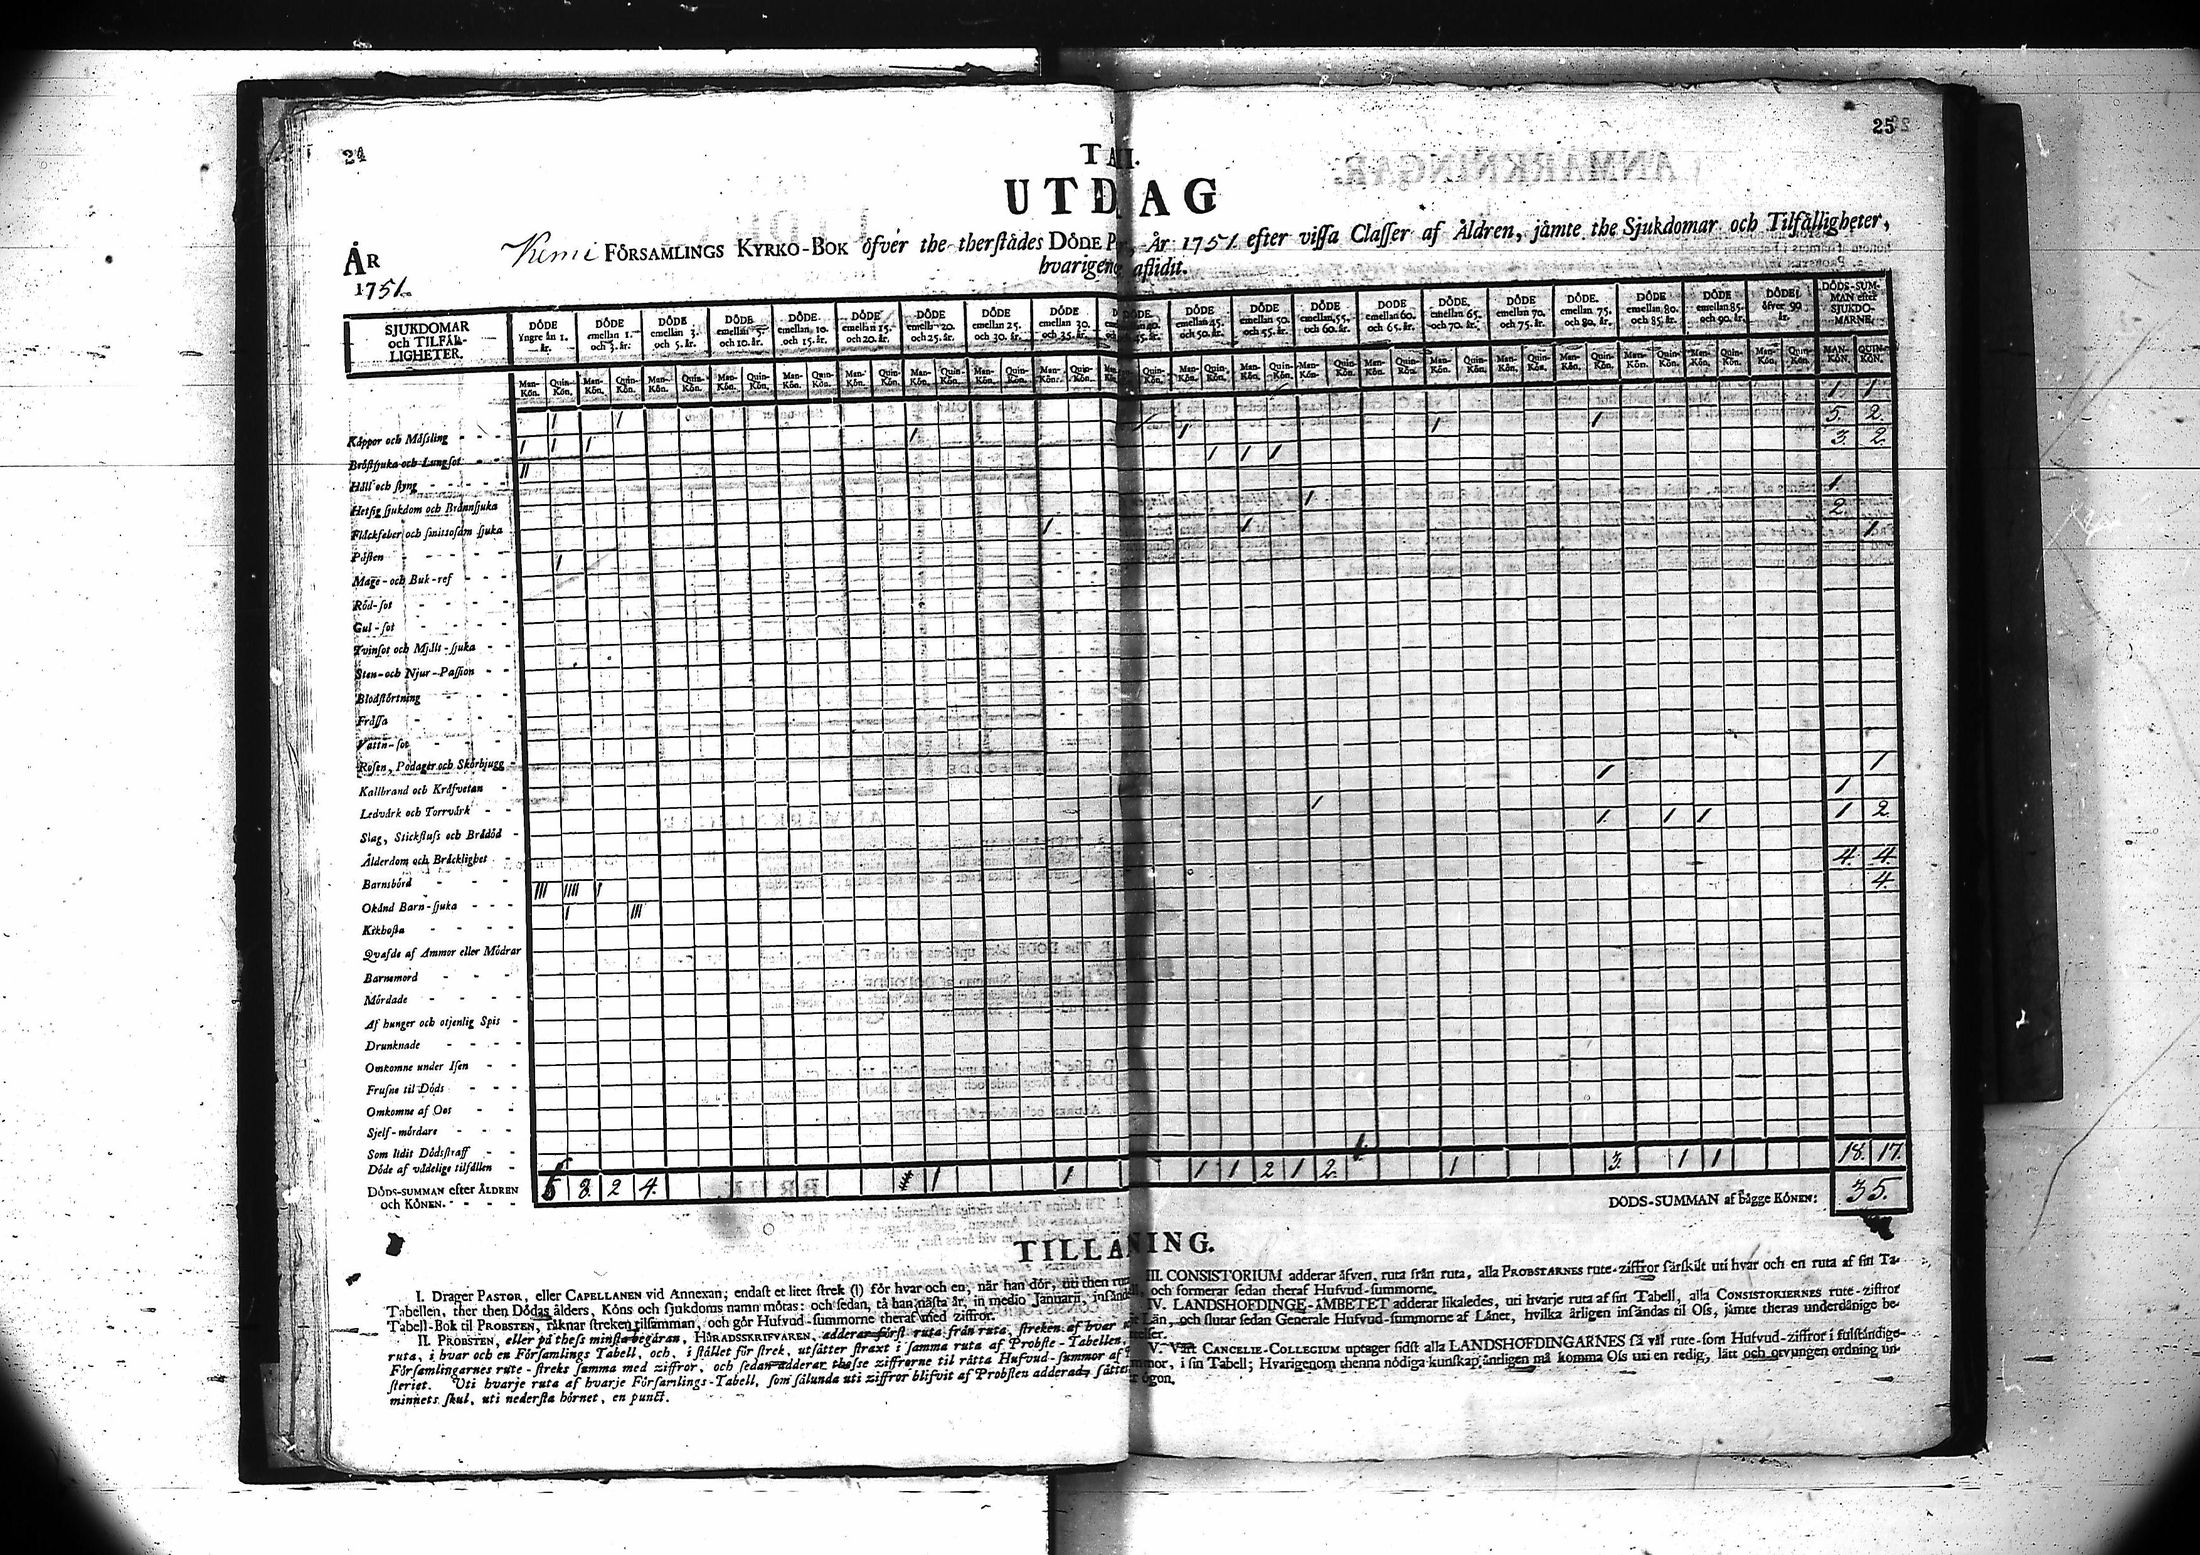 24
25
T A II.
UTD AG
ÅR
1751.
Kemi FÖRSAMLINGS KYRKO-BOK öfver the therstädes DÖDE År 1751. efter vissa Classer af Åldren, jämte the Sjukdomar och Tilfälligheter,
hvarigenom aflidit.
SJUKDOMAR och TILFÄLLIGHETER.
DÖDE Yngre än 1. år.
DÖDE emellan 1. och 3. år.
DÖDE emellan 3. och 5. år.
DÖDE emellan 5. och 10. år.
DÖDE emellan 10. och 15. år.
DÖDE emellan 15. och 20. år.
DÖDE emellan 20. och 25. år.
DÖDE emellan 25. och 30. år.
DÖDE emellan 30. och 35. år.
DÖDE emellan 45. och 50. år.
DÖDE emellan 50. och 55. år.
DÖDE emellan 55. och 60. år.
DÖDE emellan 60. och 65. år.
DÖDE. emellan 65. och 70. år.
DÖDE emellan 70. och 75. år.
DÖDE. emellan 75. och 80. år.
DÖDE emellan 80. och 85. år.
DÖDE emellan 85. och 90. år.
DÖDE öfver 99 år.
DÖDS-SUMMAN efter SJUKDOMARNE.
Man-Kön. Quin-Kön.
Kåppor och Mässling 1. 1
Bröstsjuka och Lungsot 5. 2
Håll och styng 3. 2
Hetsig sjukdom och Brännsjuka
Fläckfeber och smittosam sjuka
Pästen
Mage-och Buk-ref
Röd-sot
Gul-sot
Tvinsot och Mjält-sjuka
Sten-och Njur-Passion
Blodstörtning
Frässa
Vattn-sot
Rosen, Podager och Skörbjugg
Kallbrand och Kräfvetan
Ledvärk och Torrvärk
Slag, Stickfluss och Brådöd
Ålderdom och Bräcklighet
Barnsbörd
Okänd Barn-sjuka
Kikhosta
Qvafde af Ammor eller Mödrar
Barnemord
Mördade
Af hunger och otjenlig Spis
Drunknade
Omkomne under Isen
Frusne til Döds
Omkomne af Oos
Sjelf-mördare
Som lidit Dödsstraff
Döde af vådelige tilfällen
DÖDS-SUMMAN efter ÅLDREN och KÖNEN.
3. 2 4. 1 1 1 1 2 1 2. 1 3. 1 1 18. 17.
DÖDS-SUMMAN af bägge KÖNEN: 35.
TILLÄ NING.
I. Drager PASTOR, eller CAPELLANEN vid Annexan; endast et litet strek (l) för hvar och en, när han dör, uti then
Tabellen, ther then Dödas ålders, Köns och sjukdoms namn mötas: och sedan, tå han nästa år, in medio Januarii, insänd
Tabell-Bok til PROBSTEN, räknar streken tilsamman, och gör Hufvud-summorne theraf med ziffror.
II. PROBSTEN, eller på thess minsta begäran, HÄRADSSKRIFVAREN, adderar först ruta från ruta, streken af hvar
ruta, i hvar och en Församlings Tabell, och, i stället för strek, utsätter straxt i samma ruta af Probste-Tabellen,
Församlingarnes rute-streks summa med ziffror, och sedan adderar thesse ziffrorne til rätta Hufvud-summor af
steriet. Uti hvarje ruta af hvarje Församlings-Tabell, som sålunda uti ziffror blifvit af Probsten adderad, sätter
minnets skul, uti nedersta hörnet, en punct.
III. CONSISTORIUM adderar äfven, ruta från ruta, alla PROBSTARNES rute-ziffror särskilt uti hvar och en ruta af sin Ta-
och formerar sedan theraf Hufvud-summorne.
IV. LANDSHOFDINGE-ÄMBETET adderar likaledes, uti hvarje ruta af sin Tabell, alla CONSISTORIERNES rute-ziffror
Län, och slutar sedan Generale Hufvud-summorne af Länet, hvilka årligen insändas til Oss, jämte theras underdånige be-
V. Vårt CANCELIE-COLLEGIUM uptager sidst alla LANDSHÖFDINGARNES så väl rute-som Hufvud-ziffror i fulständige
i sin Tabell; Hvarigenom thenna nödiga kunskap ändtligen må komma Oss uti en redig, lätt och otvungen ordning un-
ögon.